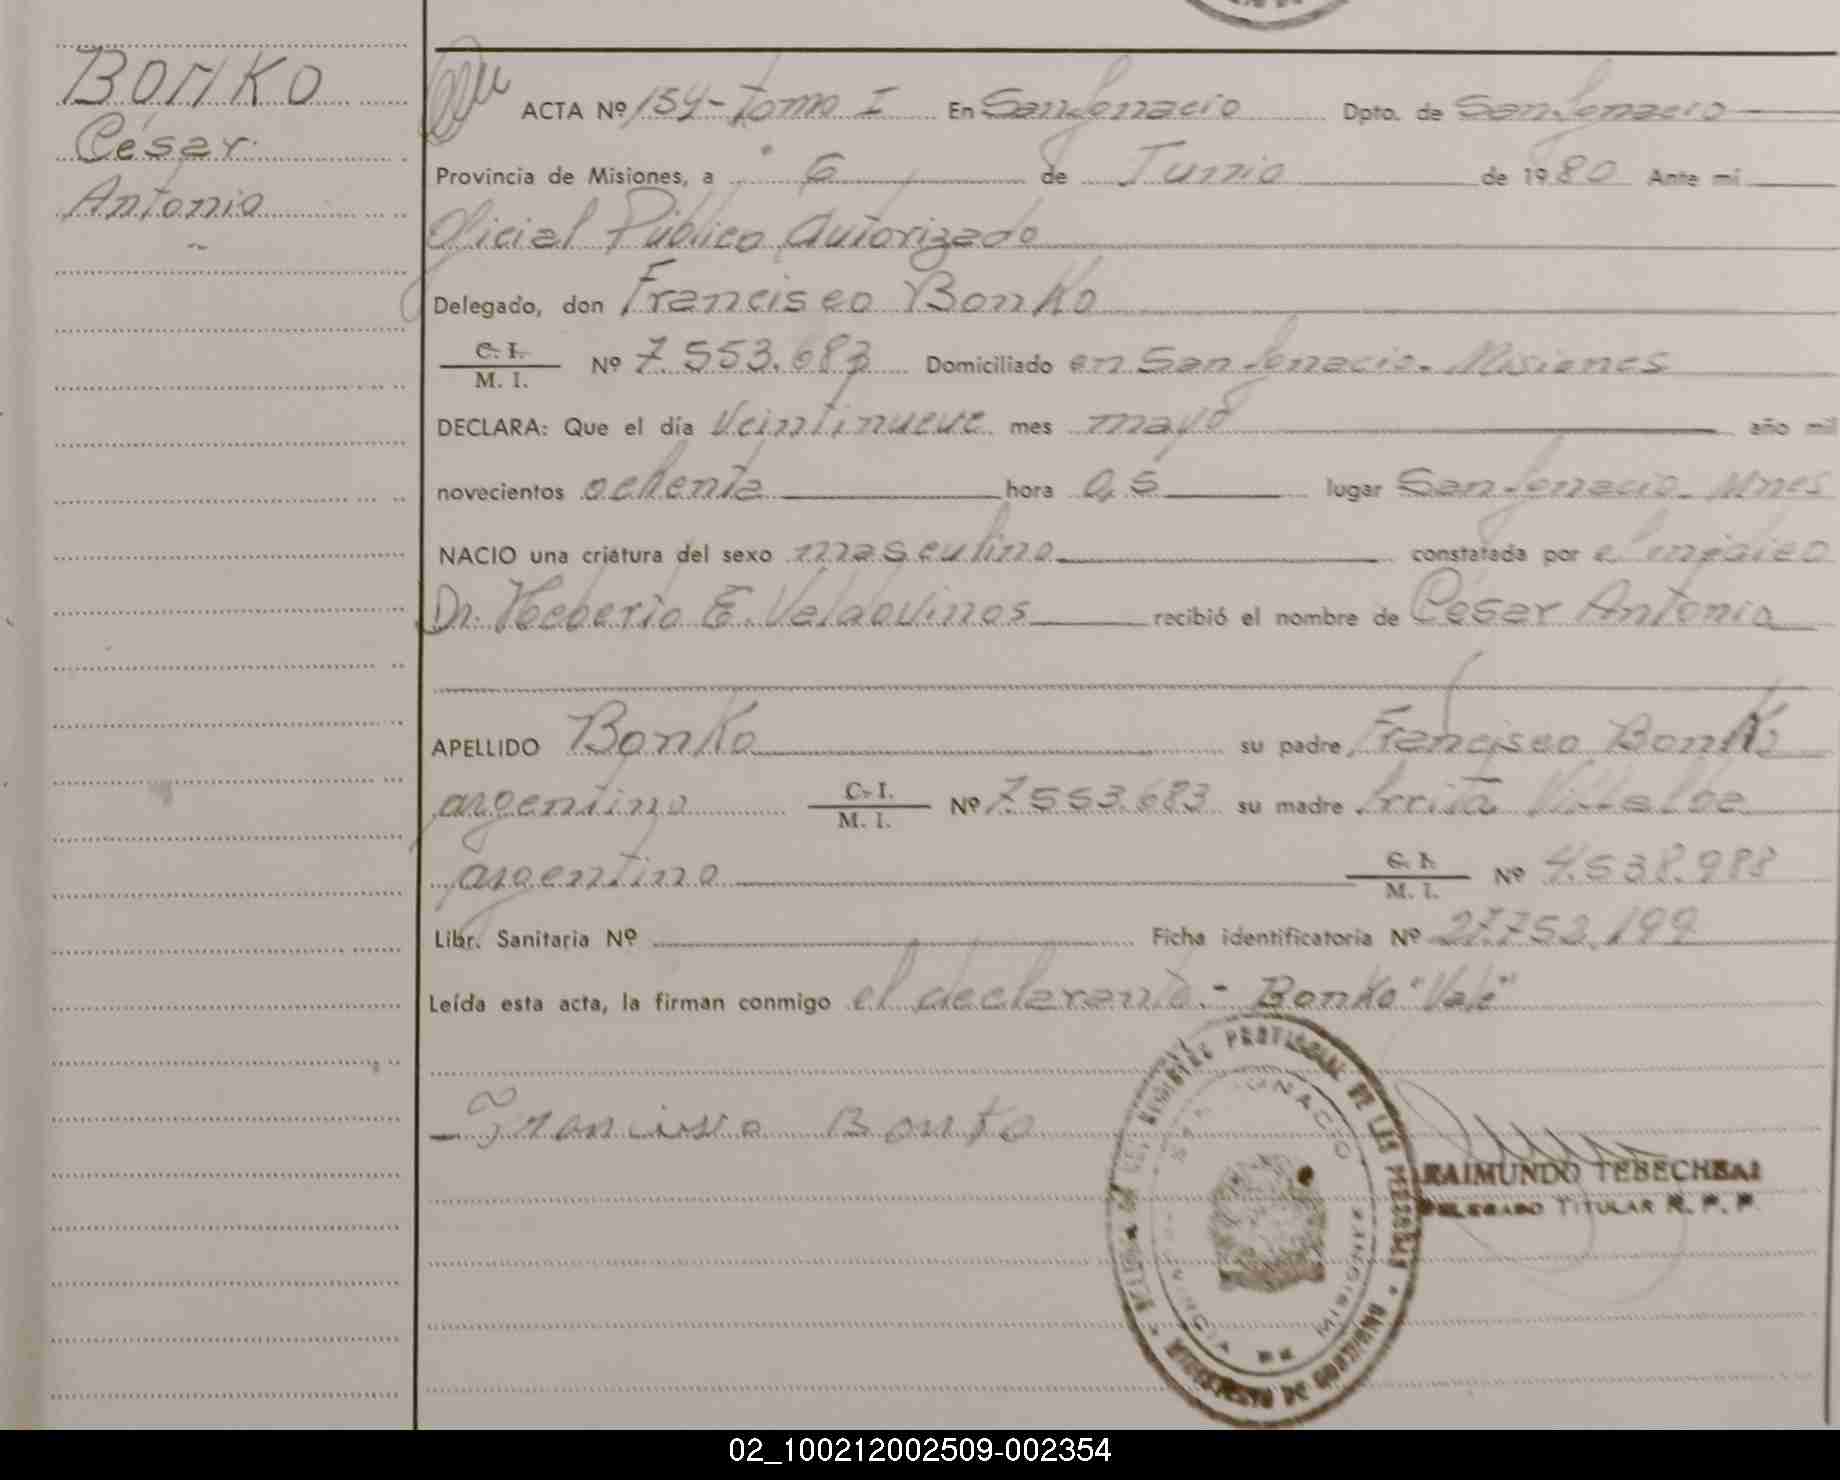 BONKO
César
Antonio
ACTA Nº 154 - Tomo I En San Ignacio Dpto. de San Ignacio
Provincia de Misiones, a 6 de Junio de 1980 Ante mí
Oficial Público Autorizado
Delegado, don Francisco Bonko
C. I. / M. I. Nº 7.553.683 Domiciliado en San Ignacio. Misiones
DECLARA: Que el día Veintinueve mes mayo año mil
novecientos ochenta hora 0,5 lugar San Ignacio. Mnes
NACIO una criatura del sexo masculino constatada por el médico
Dr. Heberto E. Valdovinos recibió el nombre de César Antonio
APELLIDO Bonko su padre Francisco Bonko
argentino C. I. / M. I. Nº 7.553.683 su madre Irrita Villalba
argentino C. I. / M. I. Nº 4.538.988
Libr. Sanitaria Nº Ficha identificatoria Nº 27.752.199
Leída esta acta, la firman conmigo el declarante.- Bonko "Vale"
Francisco Bonko
RAIMUNDO TEBECHERI
DELEGADO TITULAR R. P. P.
02_100212002509-002354